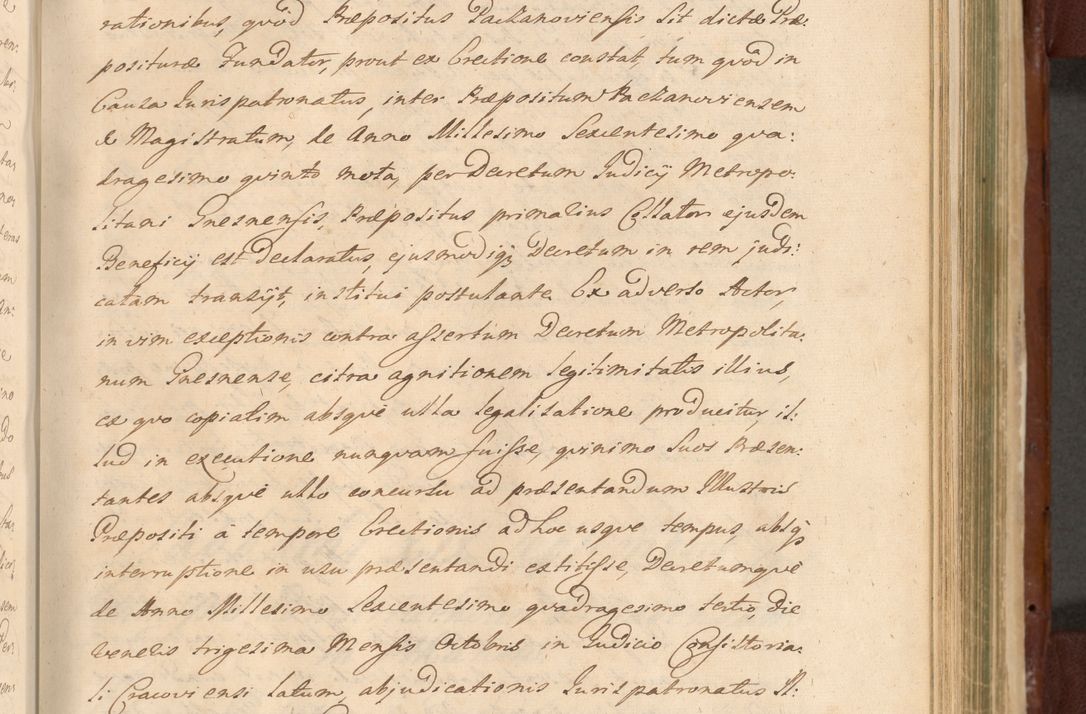 rationibus, quòd Præpositus Paczanoviensis sit dictæ Præ:
posituræ Fundator, prout ex Erectione constat, tum quòd in
Causa Jurispatronatus, inter Præpositum Paczanoviensem
& Magistratum, de Anno Millesimo Sexcentesimo qua:
dragesimo quinto mota, per Decretum Judicij Metropo:
litani Gnesnensis, Præpositus primarius Collator ejusdem
Beneficij est declaratus, ejusmodiq; Decretum in rem judi:
catam transijt, institui postulante. Ex adverso Actor,
in vim exceptionis contra assertum Decretum Metropolita:
num Gnesnense, citra agnitionem legitimitatis illius,
ex quo copiatim absque ulla legalisatione producitur, il:
lud in executione nunquam fuisse, quinimo suos Præsen:
tantes absque ullo concursu ad præsentandum Illustris
Præpositi à tempore Erectionis ad hoc usque tempus, absq;
interruptione in usu præsentandi extitisse, Decretumque
de Anno Millesimo Sexcentesimo quadragesimo tertio, die
Veneris trigesima Mensis Octobris in Judicio Consistoria:
li Cracoviensi latum, abjudicationis Jurispatronatus Il: